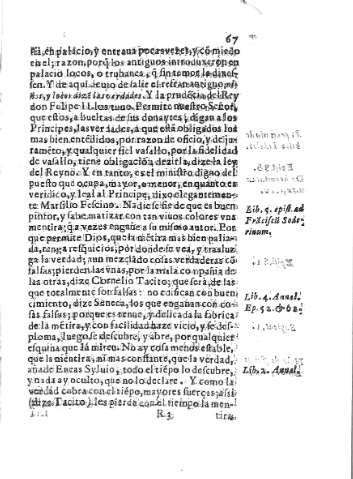 67
en palacio, y entraua pocas vezes, y có miedo
en el; razon, porq̃ los antiguos introduxeron en
palacio locos, o truhanes, q̃ sin temor
y de aqui deue de salir el refran antiguo,
y locos dizẽ las verdades. Y la prudẽcia del Rey
don Felipe II. los tuuo. Permite nuestro Señor,
que estos, a bueltas de sus donayres, digan a los
Principes, las verdades, a que está obligados los
mas bien entẽdidos, por razon de oficio, y de ju
raméto, y qualquier fiel vasallo, por la fidelidad
de vasallo, tiene obligaciõ a dezirla, dize la ley
del Reyno. Y en tanto, es el ministro digno del
puesto que ocupa, mayor, o menor, en quanto es
veridico, y leal al Principe, dixo elegantemen-
te Marsilio Fescino. Nadie se fie de que es buen
pintor, y sabe matizar con tan viuos colores vna
mentira; q̃ a vezes engañe a su mismo autor. Por
que permite Dios, que la métira mas bien palia-
da, tenga resquicios, por donde se vea, y trasluz-
ga la verdad; aun mezclado cosas verdaderas cõ
falsas; pierden las vnas, por la mala compañia de
las otras, dize Cornelio Tacito; que será, de las
que totalmente son falsas: no edifican con buen
cimiento, dize Seneca, los que engañan con co-
sas falsas; porque es tenue, y delicada la fabrica
de la métira, y con facilidad haze vicio, y se des-
ploma, luego se descubre, y abre, por qualquier
esquina que la miren. No ay cosa menos estable,
que la mentira; ni mas constante, que la verdad,
añade Eneas Syluio, todo el tiẽpo lo descubre,
y nada ay oculto, que no lo declare. Y como la
verdad cobra con el tiẽpo, mayores fuerças; assi
(dize Tacito) les pierde con el tiempo la men-
R 3 tira,
Lib. 9. epist. ad
Frãciscũ Sode-
rinum.
Lib. 4. Annal.
Ep. 52. & 62.
Lib. 2. Annal.